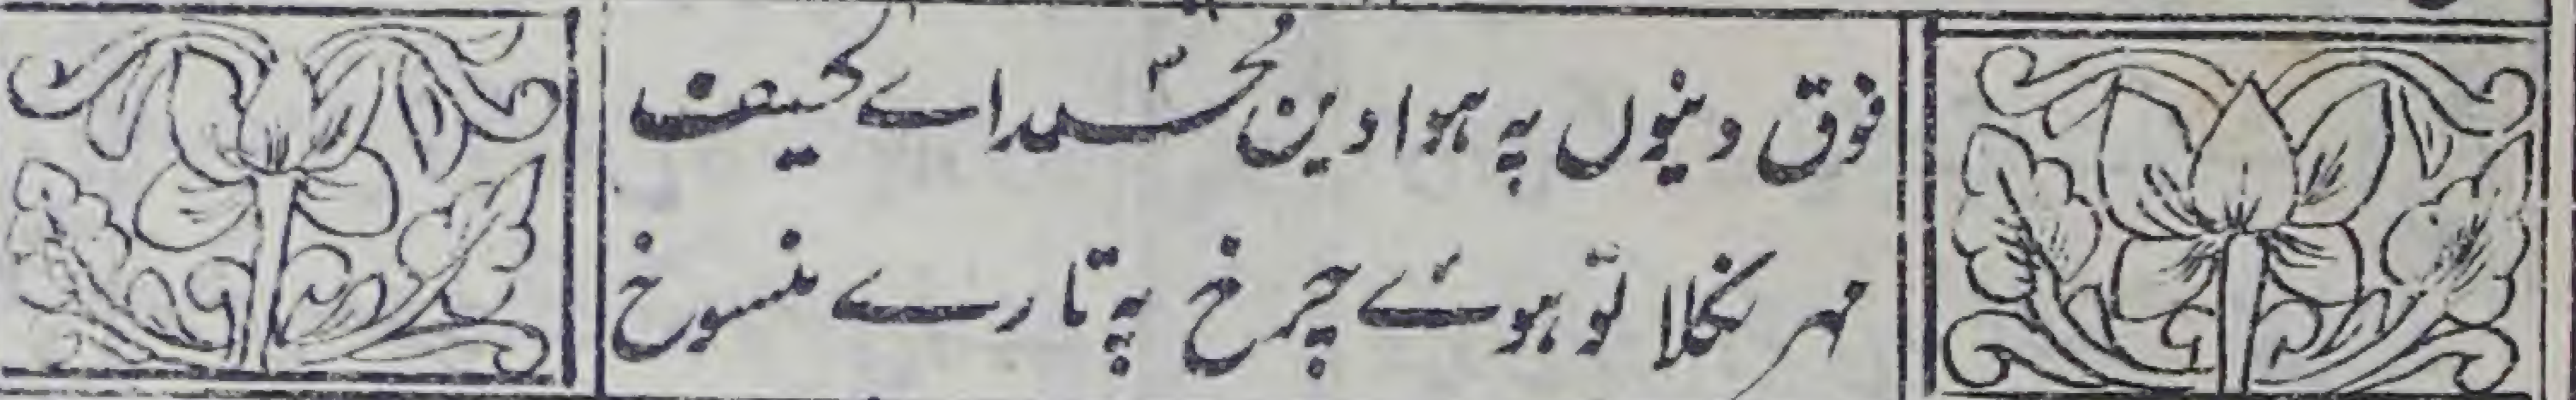 فوق دینوں پہ ہوا دین محمدؐ اے کیف
مہر نکلا تو ہوئے چرخ پہ تارے منسوخ